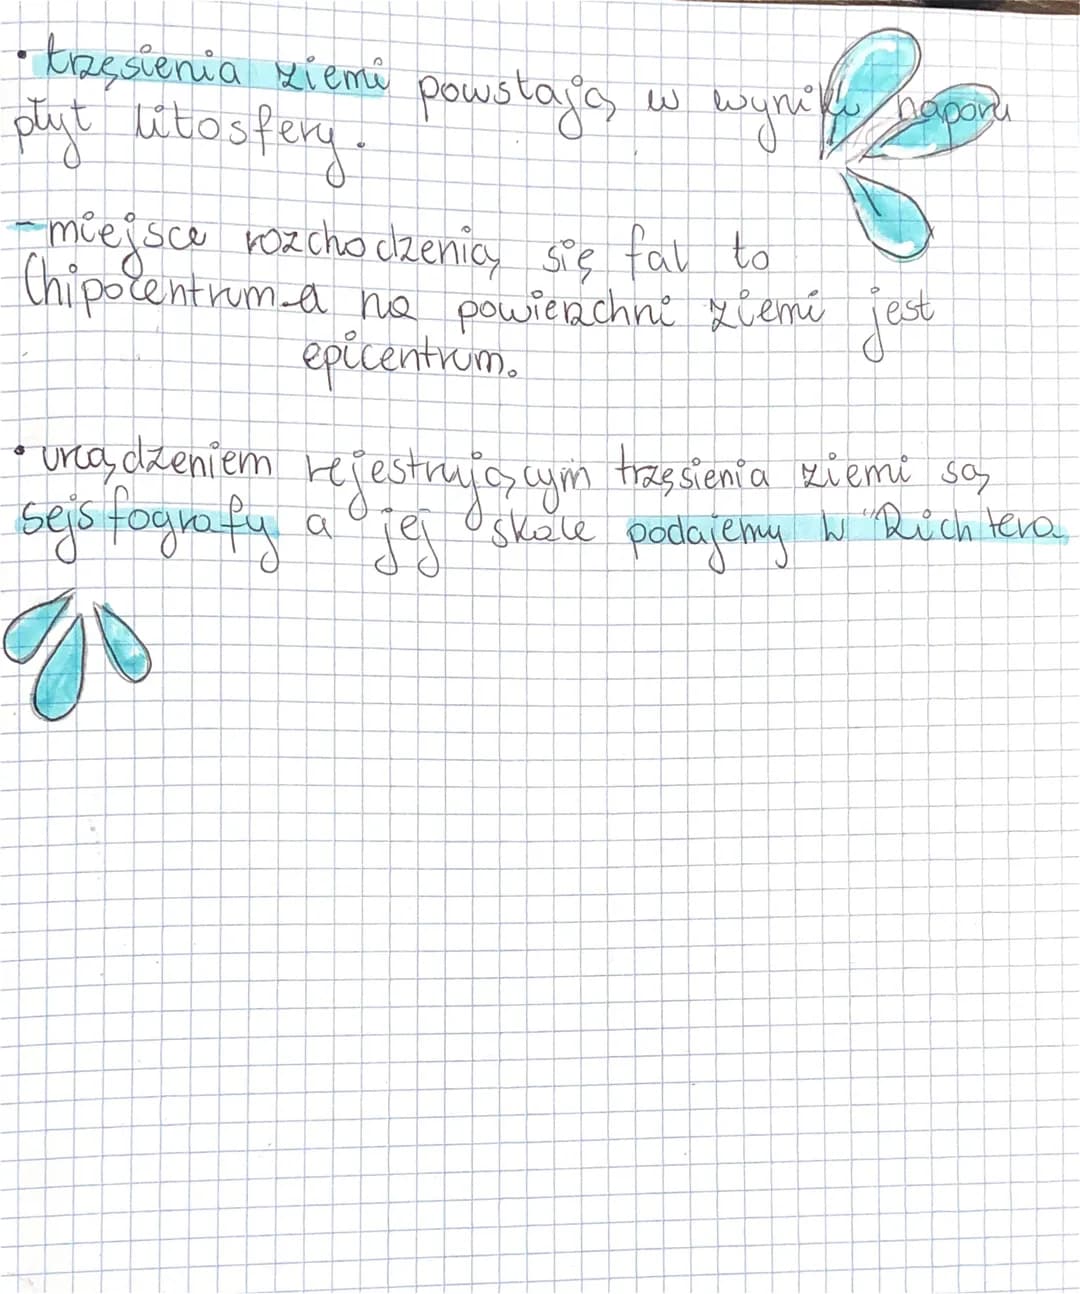 • trzęsienia ziemi powstają w wyniku naporu
płyt litosfery.
- miejsce rozchodzenią się fal to
Chipocentrum-a na powierzchni ziemi jest
epicentrum.
• urządzeniem rejestrującym trzęsienia ziemi są
sejsfografy a jej skale podajemy w "Richtera